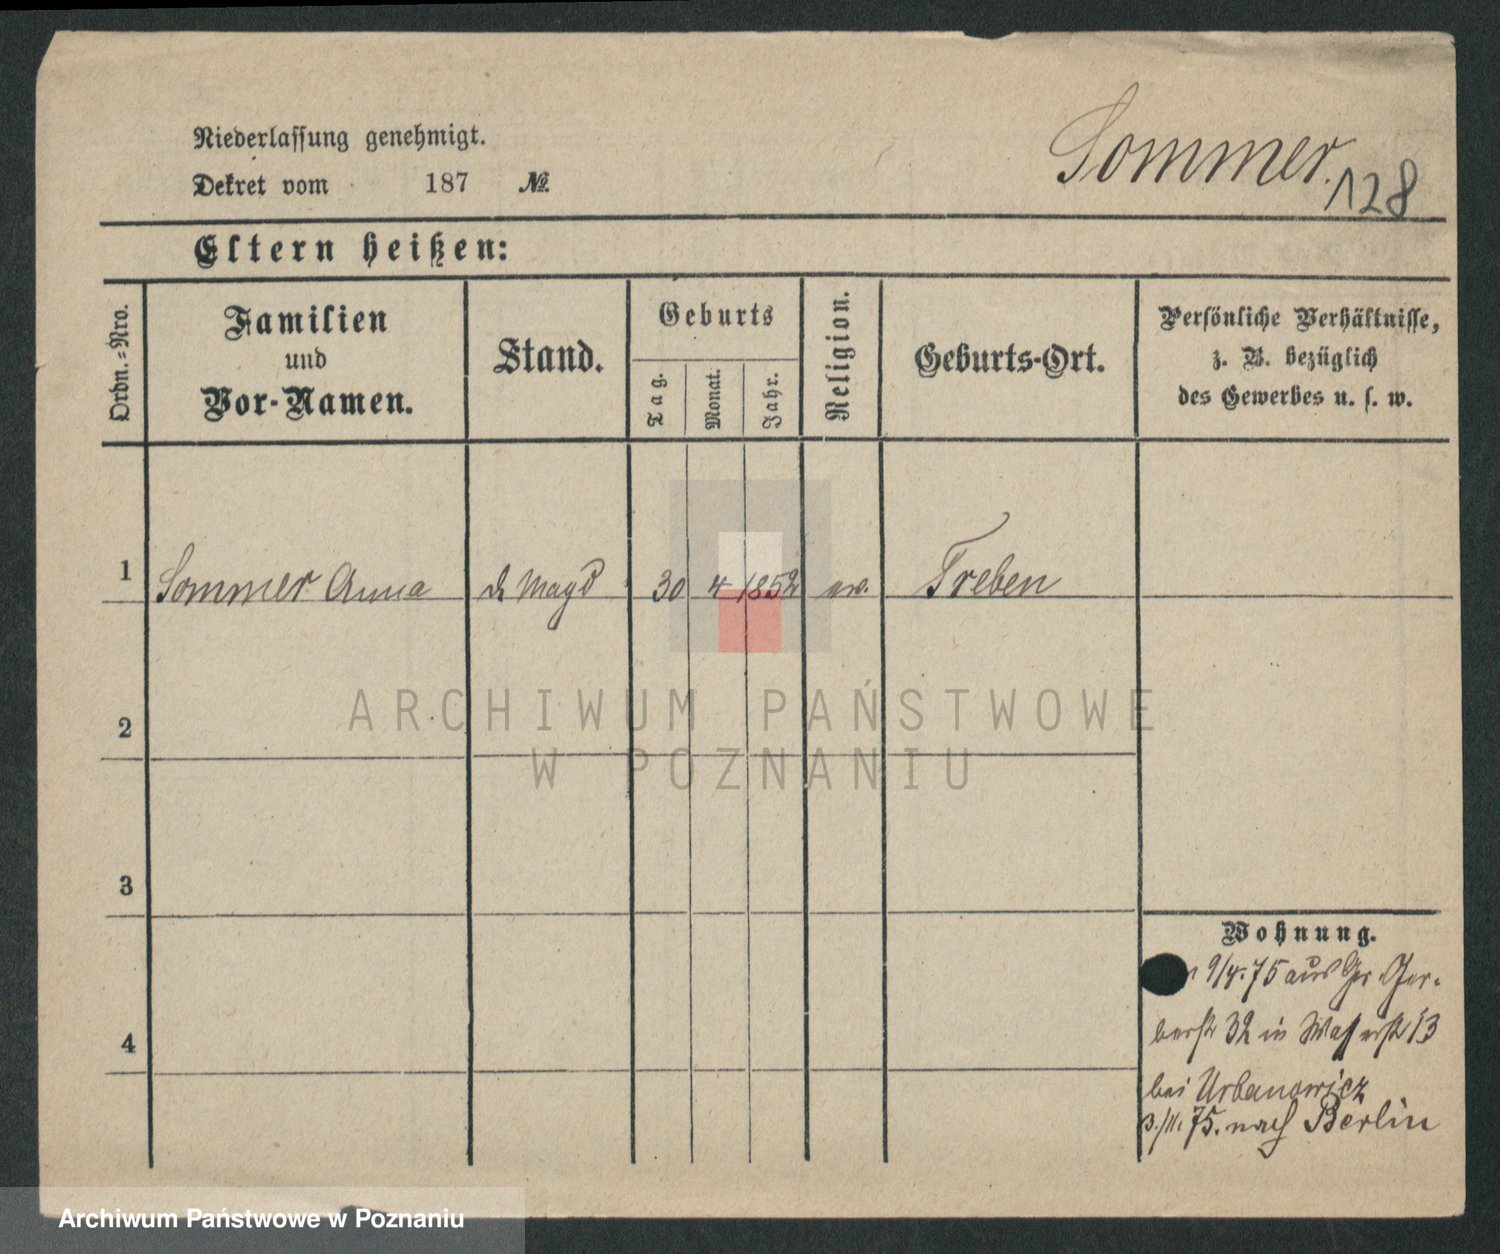 Sommer.
128
Niederlassung genehmigt.
Dekret vom 187 №
Eltern heißen:
Ordn.-Nro.
Familien
und
Vor-Namen.
Stand.
Geburts
Tag.
Monat.
Jahr.
Religion.
Geburts-Ort.
Persönliche Verhältnisse,
z. B. bezüglich
des Gewerbes u. s. w.
1 Sommer Anna d. Magd 30 4 1852 ev. Treben
2
3
4
Wohnung.
9/4. 75 aus Gr. Ger-
berstr 32 in Wasserstr 13
bei Urbanowicz
3./11. 75. nach Berlin
ARCHIWUM PAŃSTWOWE
W POZNANIU
Archiwum Państwowe w Poznaniu